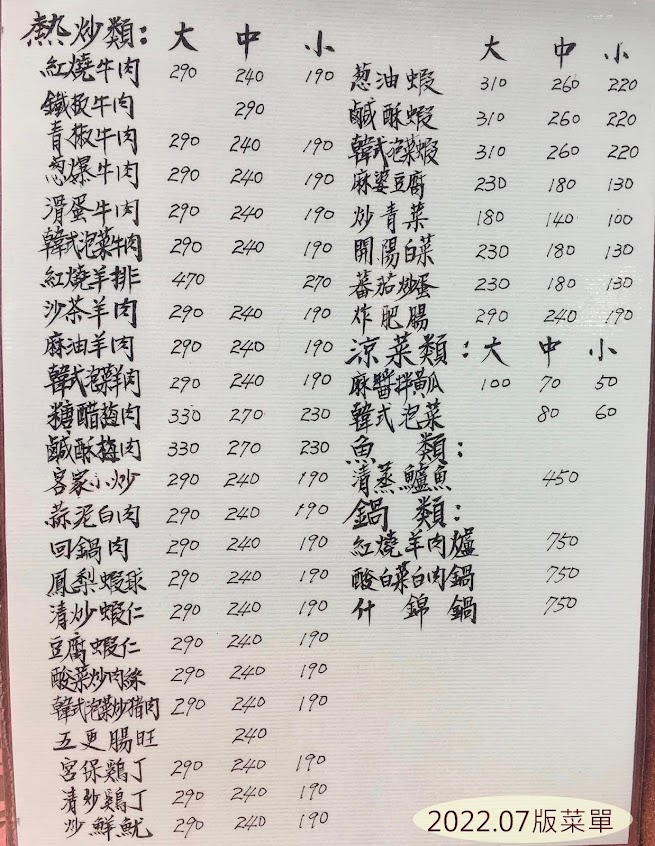 熱炒類: 大 中 小
紅燒牛肉 290 240 190
鐵板牛肉 290
青椒牛肉 290 240 190
蔥爆牛肉 290 240 190
滑蛋牛肉 290 240 190
韓式泡菜牛肉 290 240 190
紅燒羊排 470 270
沙茶羊肉 290 240 190
麻油羊肉 290 240 190
韓式泡菜羊肉 290 240 190
糖醋梅肉 330 270 230
鹹酥梅肉 330 270 230
客家小炒 290 240 190
蒜泥白肉 290 240 190
回鍋肉 290 240 190
鳳梨蝦球 290 240 190
清炒蝦仁 290 240 190
豆腐蝦仁 290 240 190
酸菜炒肉絲 290 240 190
韓式泡菜炒豬肉 290 240 190
五更腸旺 240
宮保鷄丁 290 240 190
清炒鷄丁 290 240 190
炒鮮魷 290 240 190
大 中 小
葱油蝦 310 260 220
鹹酥蝦 310 260 220
韓式泡菜蝦 310 260 220
麻婆豆腐 230 180 130
炒青菜 180 140 100
開陽白菜 230 180 130
蕃茄炒蛋 230 180 130
炸肥腸 290 240 190
涼菜類:大 中 小
麻醬拌黃瓜 100 70 50
韓式泡菜 80 60
魚 類:
清蒸鱸魚 450
鍋 類:
紅燒羊肉爐 750
酸白菜白肉鍋 750
什錦鍋 750
2022.07版菜單